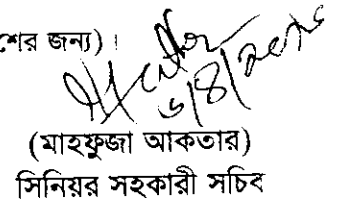 শের জন্য)।
৬/৪/২০১৬
(মাহফুজা আকতার)
সিনিয়র সহকারী সচিব